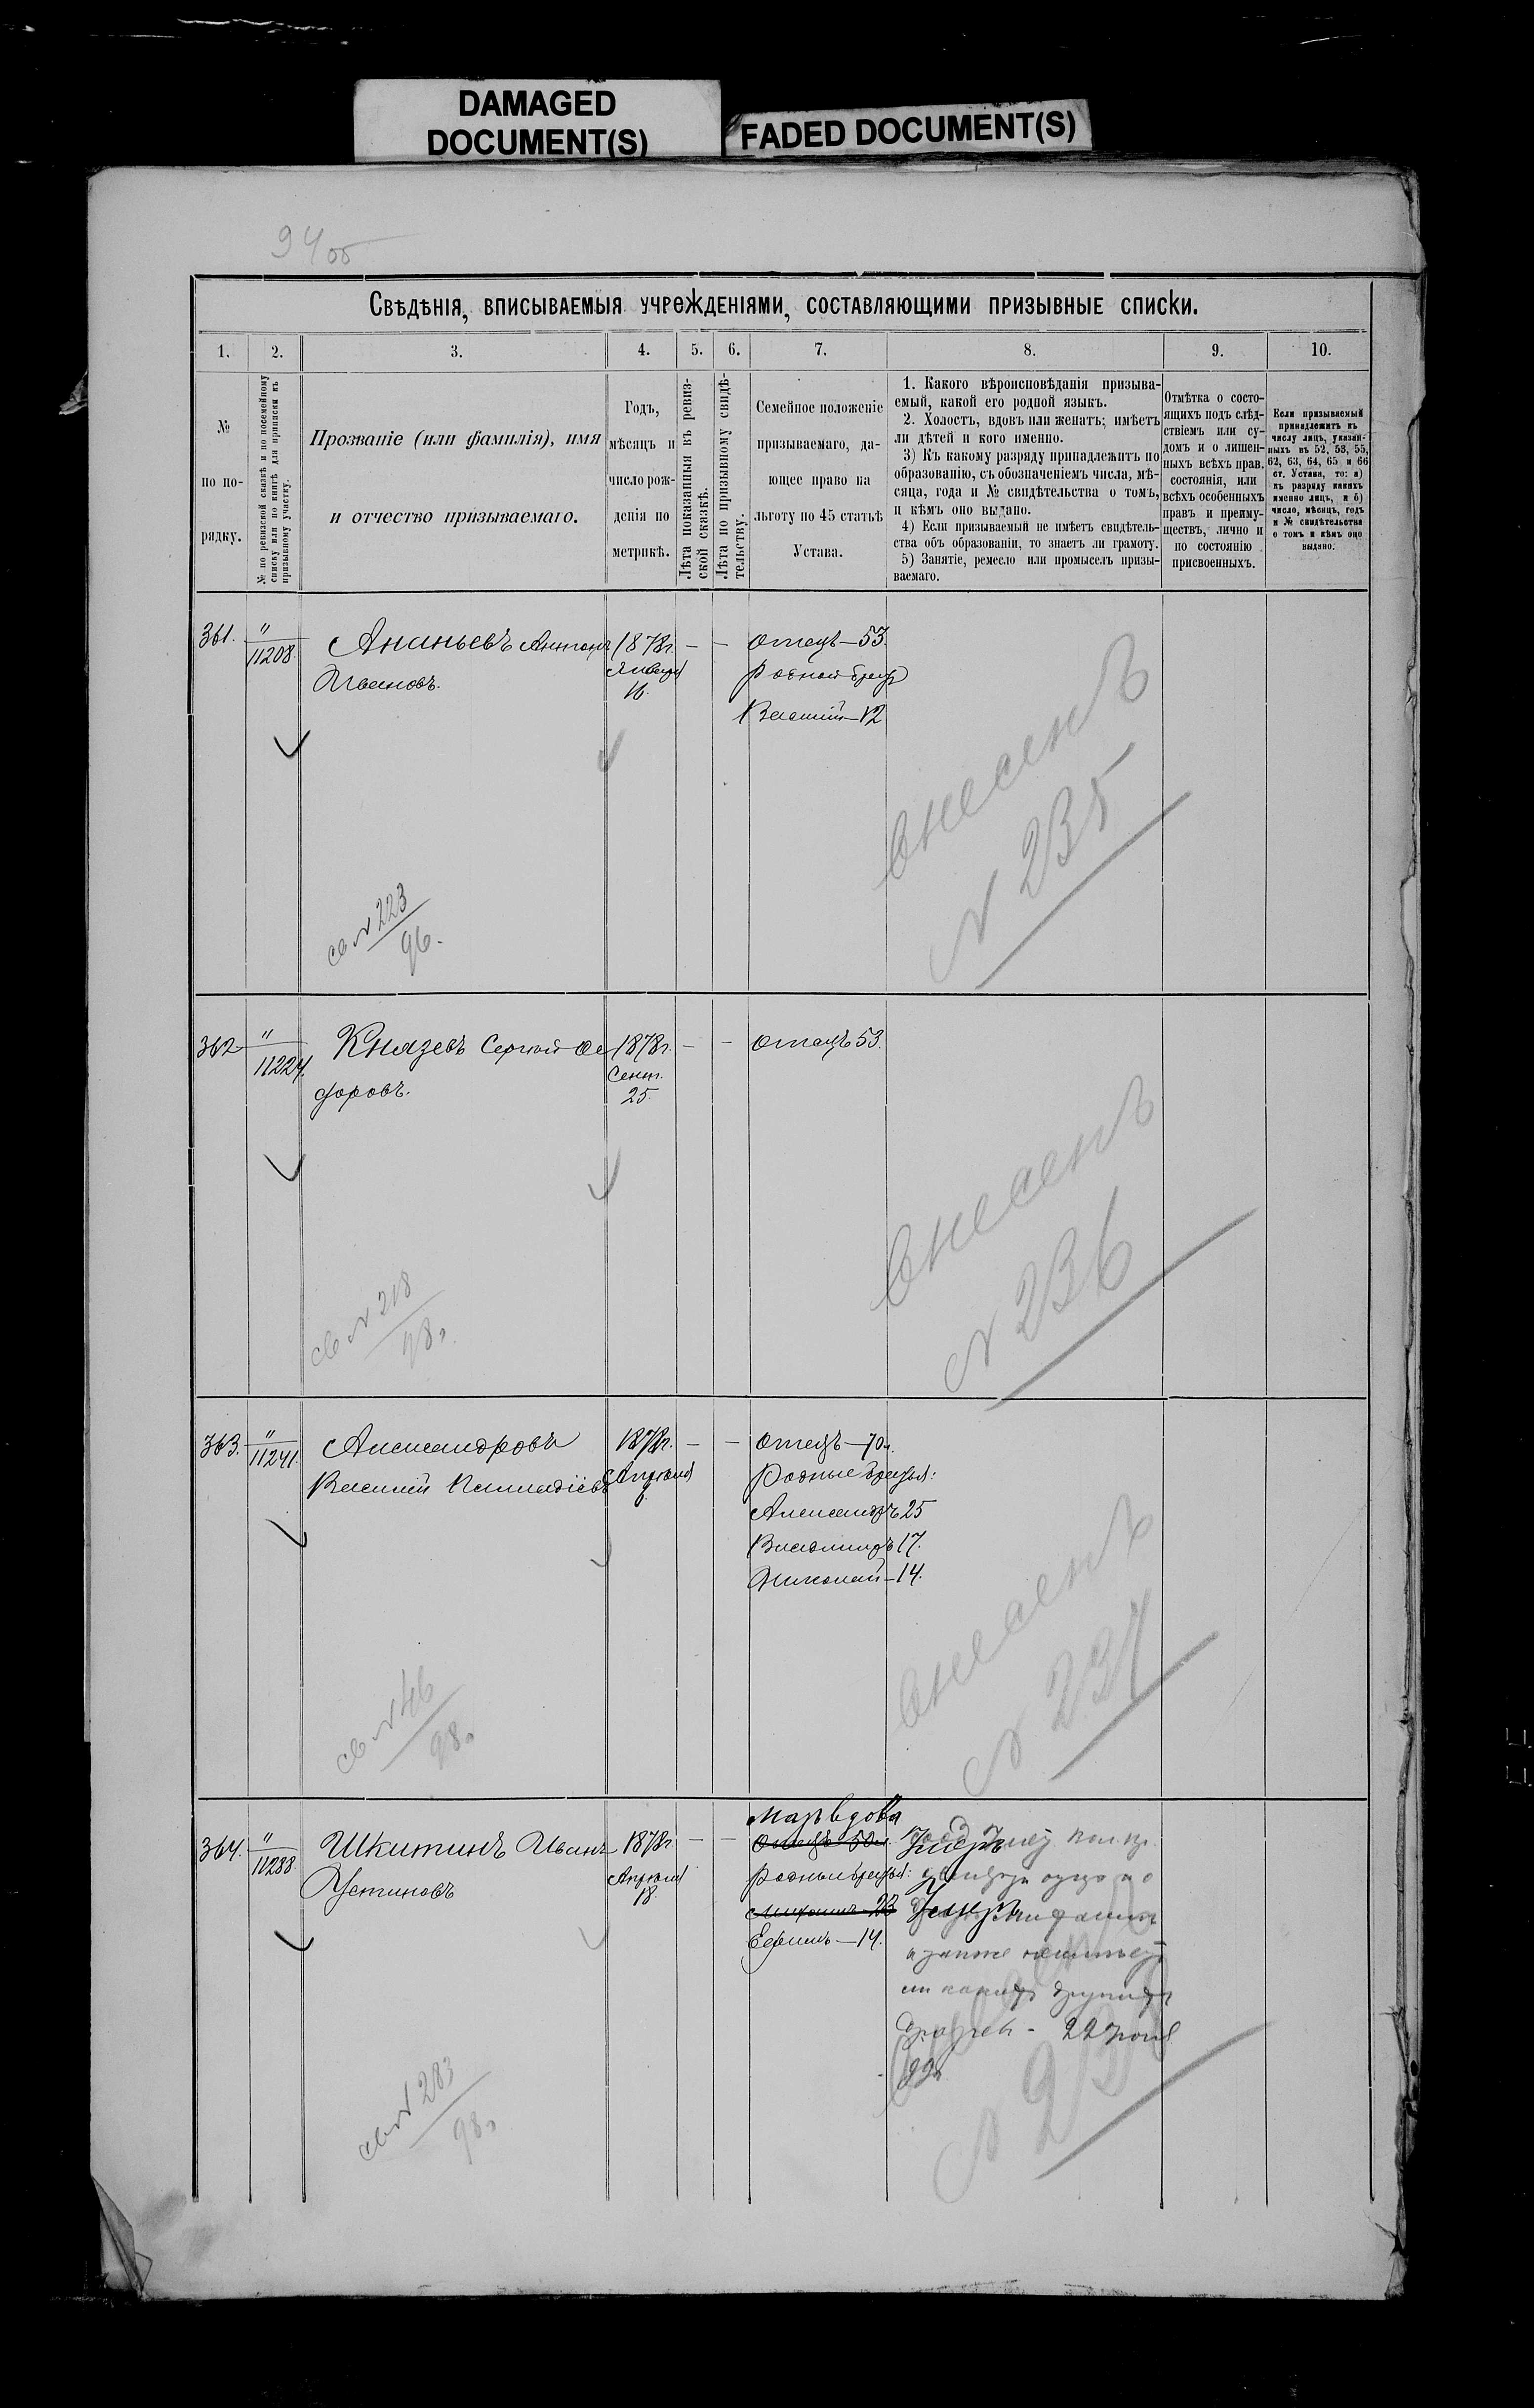 DAMAGED
DOCUMENT(S)
FADED DOCUMENT(S)
9400
Свѣдѣнія, вписываемыя учрежденіями, составляющими призывные списки.
1.
2.
3.
4.
5.
6.
7.
8.
9.
10.
№
по по-
рядку.
№ по ревизской сказкѣ и по посемейному
списку или по книгѣ для приписки къ
призывному участку.
Прозваніе (или фамилія), имя
и отчество призываемаго.
Годъ,
мѣсяцъ и
число рож-
денія по
метрикѣ.
Лѣта показанныя въ ревиз-
ской сказкѣ.
Лѣта по призывному свидѣ-
тельству.
Семейное положеніе
призываемаго, да-
ющее право на
льготу по 45 статьѣ
Устава.
1. Какого вѣроисповѣданія призыва-
емый, какой его родной языкъ.
2. Холостъ, вдовъ или женатъ; имѣетъ
ли дѣтей и кого именно.
3) Къ какому разряду принадлежитъ по
образованію, съ обозначеніемъ числа, мѣ-
сяца, года и № свидѣтельства о томъ,
и кѣмъ оно выдано.
4) Если призываемый не имѣетъ свидѣтель-
ства объ образованіи, то знаетъ ли грамоту.
5) Занятіе, ремесло или промыселъ призы-
ваемаго.
Отмѣтка о состо-
ящихъ подъ слѣд-
ствіемъ или су-
домъ и о лишен-
ныхъ всѣхъ прав.
состоянія, или
всѣхъ особенныхъ
правъ и преиму-
ществъ, лично и
по состоянію
присвоенныхъ.
Если призываемый
принадлежитъ къ
числу лицъ, указан-
ныхъ въ 52, 53, 55,
62, 63, 64, 65 и 66
ст. Устава, то: а)
къ разряду какихъ
именно лицъ, и б)
число, мѣсяцъ, годъ
и № свидѣтельства
о томъ и кѣмъ оно
выдано.
361.
"
11208.
Ананьевъ Антонъ
Ивановъ.
1878г.
Января
16.
—
—
Отецъ—53.
Родной братъ
Василій—12
внесенъ
№ 235
св № 223
96.
362
"
11224.
Князевъ Сергѣй Ѳе
доровъ.
1878г.
Сент.
25.
—
—
Отецъ 53.
внесенъ
№ 236
св № 218
98г.
363.
"
11241.
Александровъ
Василий Геннадіевъ
1878г.
Апрѣля
—
—
Отецъ—70л.
Родные братья:
Александръ 25
Владиміръ 17.
Николай—14.
внесенъ
№ 237
св № 46
98г.
364.
"
11288.
Шкитинъ Иванъ
Устиновъ
1878г
Апрѣля
18.
—
—
Мать вдова
Отецъ 50л.
Родные братья:
Ефимъ—14.
Умеръ
Умеръ
22 Іюня
99г
св № 283
98г.